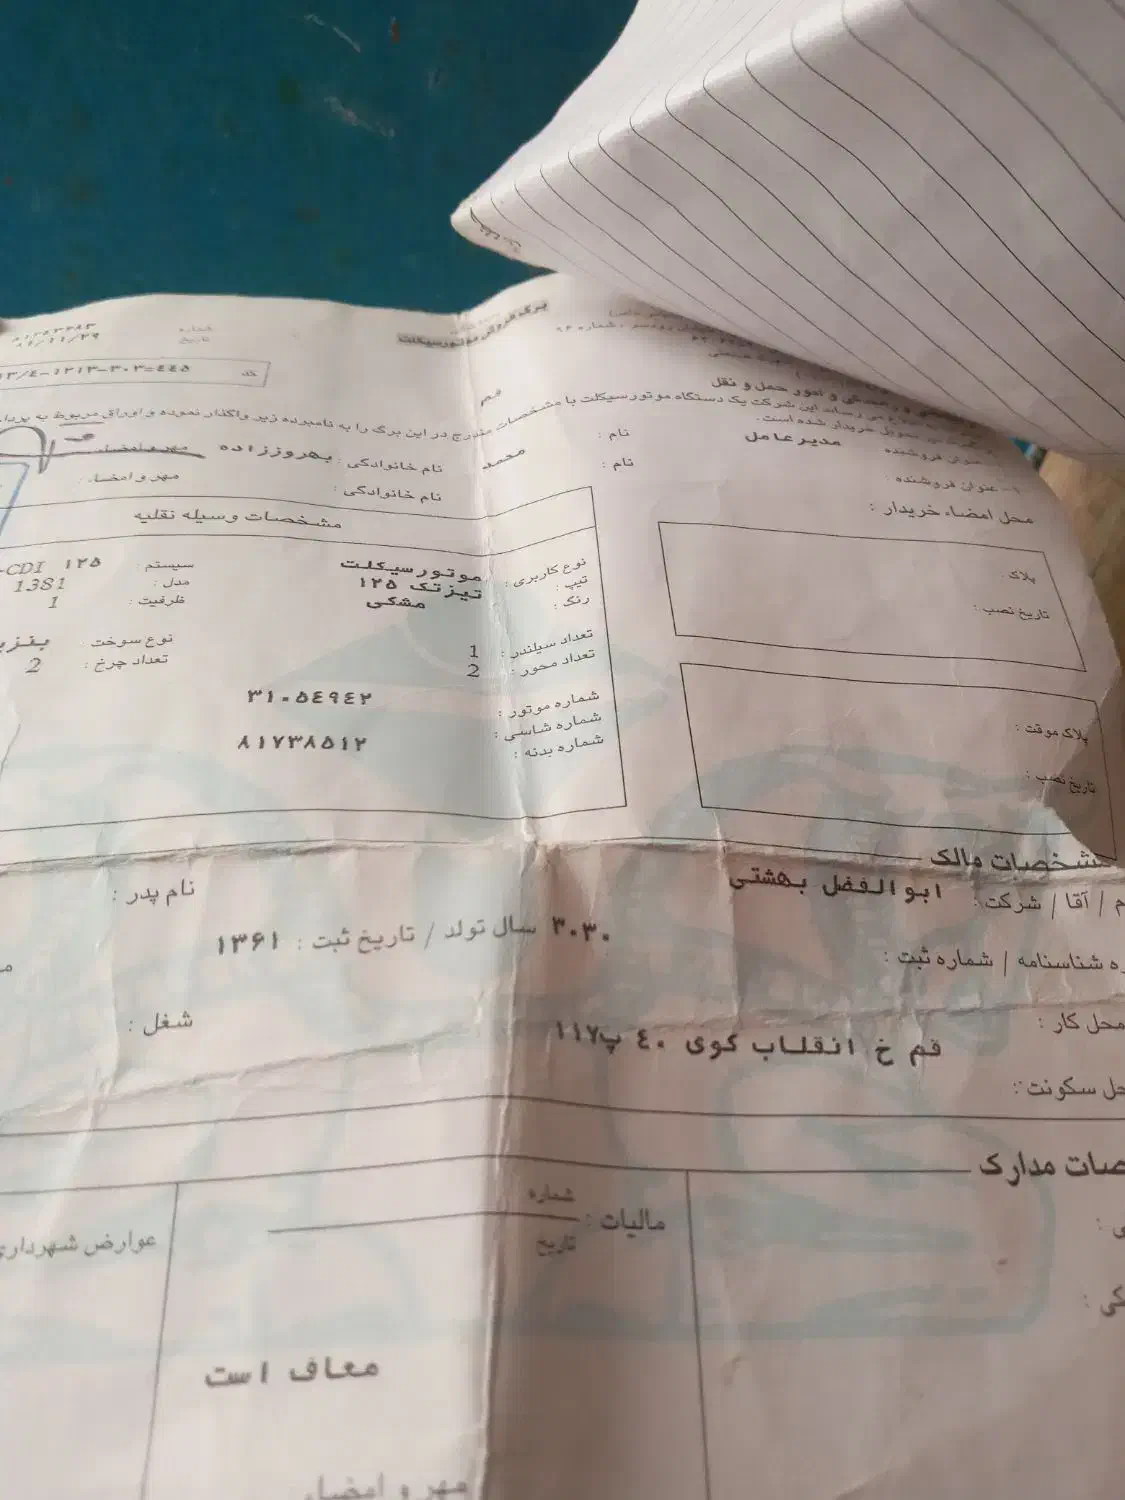 برگ فروش موتورسیکلت
شماره
تاریخ ۸۱/۱۱/۲۹
کد
قم
و امور حمل و نقل
این شرکت یک دستگاه موتورسیکلت با مشخصات مندرج در این برگ را به نامبرده زیر واگذار نموده و اوراق مربوط به
تحویل خریدار شده است.
عنوان فروشنده مدیرعامل نام : محمد نام خانوادگی : بهروززاده مهر و امضاء
۱- عنوان فروشنده : نام : نام خانوادگی : مهر و امضاء :
محل امضاء خریدار :
مشخصات وسیله نقلیه
پلاک :
تاریخ نصب :
نوع کاربری : موتورسیکلت سیستم : CDI ۱۲۵
تیپ : تیزتک ۱۲۵ مدل : 1381
رنگ : مشکی ظرفیت : 1
تعداد سیلندر : 1 نوع سوخت
تعداد محور : 2 تعداد چرخ : 2
شماره موتور : ۳۱۰۵٤۹٤۲
شماره شاسی : ۸۱۷۳۸۵۱۲
شماره بدنه :
پلاک موقت :
تاریخ نصب :
مشخصات مالک
آقا / شرکت : ابوالفضل بهشتی نام پدر :
شناسنامه / شماره ثبت : ۳۰۳۰ سال تولد / تاریخ ثبت : ۱۳۶۱
محل کار : شغل :
قم خ انقلاب کوی ٤۰ پ۱۱۷
سکونت :
مدارک
مالیات : شماره
تاریخ
عوارض شهرداری
معاف است
مهر و امضاء